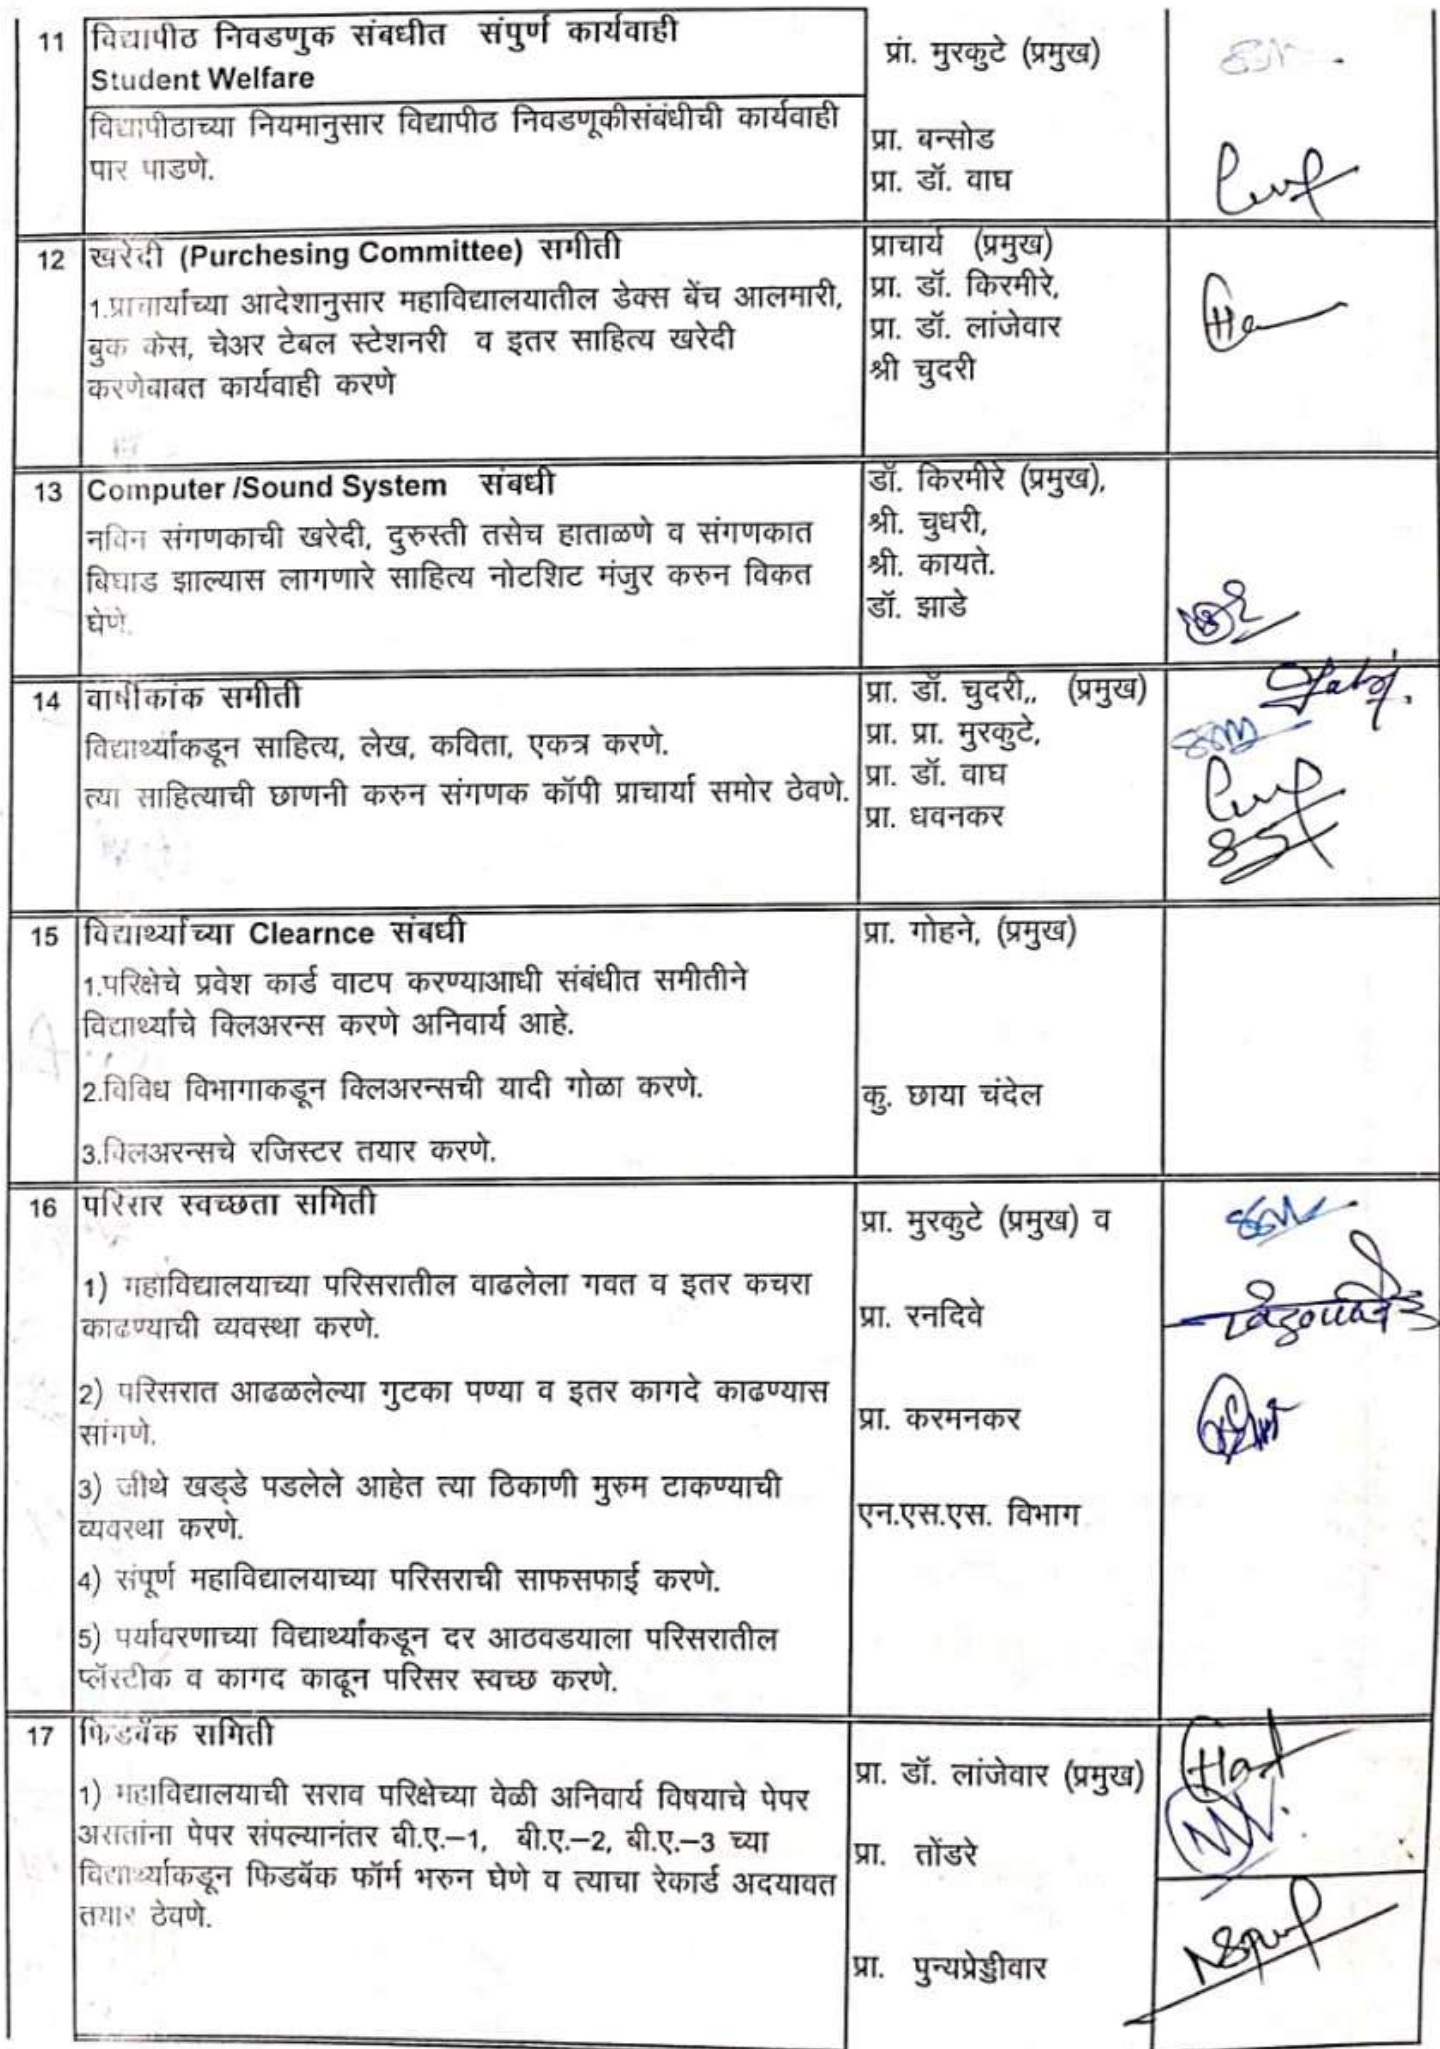 11 विद्यापीठ निवडणुक संबधीत संपुर्ण कार्यवाही
Student Welfare
प्रां. मुरकुटे (प्रमुख)
विद्यापीठाच्या नियमानुसार विद्यापीठ निवडणूकीसंबंधीची कार्यवाही
पार पाडणे.
प्रा. बन्सोड
प्रा. डॉ. वाघ
12 खरेदी (Purchesing Committee) समीती
1.प्राचार्याच्या आदेशानुसार महाविद्यालयातील डेक्स बेंच आलमारी,
बुक केस, चेअर टेबल स्टेशनरी व इतर साहित्य खरेदी
करणेबाबत कार्यवाही करणे
प्राचार्य (प्रमुख)
प्रा. डॉ. किरमीरे,
प्रा. डॉ. लांजेवार
श्री चुदरी
13 Computer /Sound System संबधी
नविन संगणकाची खरेदी, दुरुस्ती तसेच हाताळणे व संगणकात
बिघाड झाल्यास लागणारे साहित्य नोटशिट मंजुर करुन विकत
घेणे.
डॉ. किरमीरे (प्रमुख),
श्री. चुधरी,
श्री. कायते.
डॉ. झाडे
14 वार्षीकांक समीती
विद्यार्थ्यांकडून साहित्य, लेख, कविता, एकत्र करणे.
त्या साहित्याची छाणनी करुन संगणक कॉपी प्राचार्या समोर ठेवणे.
प्रा. डॉ. चुदरी,, (प्रमुख)
प्रा. प्रा. मुरकुटे,
प्रा. डॉ. वाघ
प्रा. धवनकर
15 विद्यार्थ्याच्या Clearnce संबधी
1.परिक्षेचे प्रवेश कार्ड वाटप करण्याआधी संबंधीत समीतीने
विद्यार्थ्याचे क्लिअरन्स करणे अनिवार्य आहे.
2.विविध विभागाकडून क्लिअरन्सची यादी गोळा करणे.
3.क्लिअरन्सचे रजिस्टर तयार करणे.
प्रा. गोहने, (प्रमुख)
कु. छाया चंदेल
16 परिसर स्वच्छता समिती
1) महाविद्यालयाच्या परिसरातील वाढलेला गवत व इतर कचरा
काढण्याची व्यवस्था करणे.
2) परिसरात आढळलेल्या गुटका पण्या व इतर कागदे काढण्यास
सांगणे.
3) जीथे खड्डे पडलेले आहेत त्या ठिकाणी मुरुम टाकण्याची
व्यवस्था करणे.
4) संपूर्ण महाविद्यालयाच्या परिसराची साफसफाई करणे.
5) पर्यावरणाच्या विद्यार्थ्यांकडून दर आठवडयाला परिसरातील
प्लॅस्टीक व कागद काढून परिसर स्वच्छ करणे.
प्रा. मुरकुटे (प्रमुख) व
प्रा. रनदिवे
प्रा. करमनकर
एन.एस.एस. विभाग
17 फिडबॅक समिती
1) महाविद्यालयाची सराव परिक्षेच्या वेळी अनिवार्य विषयाचे पेपर
असतांना पेपर संपल्यानंतर बी.ए.–1, बी.ए.–2, बी.ए.–3 च्या
विद्यार्थ्याकडून फिडबॅक फॉर्म भरुन घेणे व त्याचा रेकार्ड अदयावत
तयार ठेवणे.
प्रा. डॉ. लांजेवार (प्रमुख)
प्रा. तोंडरे
प्रा. पुन्यप्रेड्डीवार